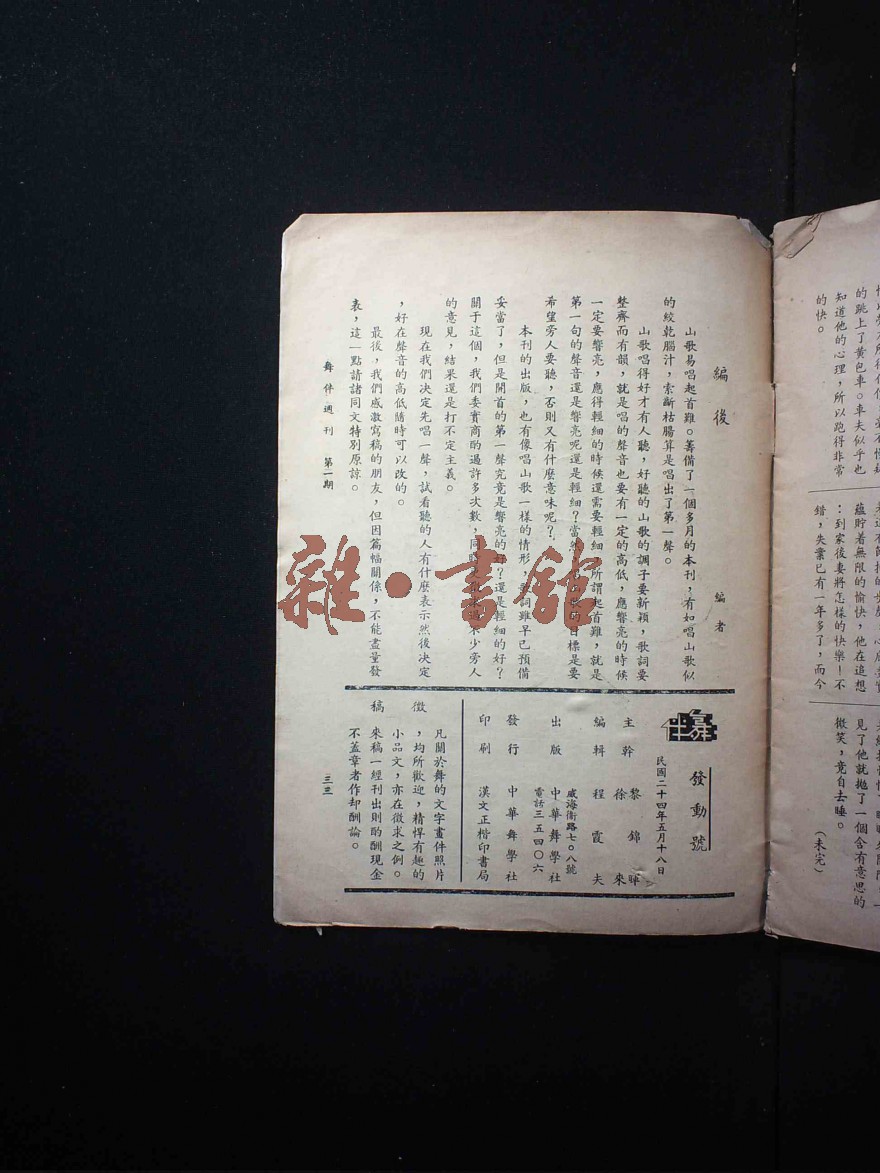 的跳上了黄包車。車夫似乎也
知道他的心理，所以跑得非常
的快。
蘊貯着無限的愉快，他在追想
：到家後妻將怎樣的快樂！不
錯，失業已有一年多了，而今
見了他就拋了一個含有意思的
微笑，竟自去睡。
（未完）
編後
編者
山歌易唱起首難。籌備了一個多月的本刊，有如唱山歌似
的絞乾腦汁，索斷枯腸算是唱出了第一聲。
山歌唱得好才有人聽，好聽的山歌的調子要新穎，歌詞要
整齊而有韻，就是唱的聲音也要有一定的高低，應響亮的時候
一定要響亮，應得輕細的時候還需要輕細。所謂起首難，就是
第一句的聲音還是響亮呢還是輕細？當然，唱山歌的目標是要
希望旁人要聽，否則又有什麼意味呢？
本刊的出版，也有像唱山歌一樣的情形，歌詞雖早已預備
妥當了，但是開首的第一聲究竟是響亮的好？還是輕細的好？
關于這個，我們委實商酌過許多次數，同時不少旁人
的意見，結果還是打不定主義。
現在我們决定先唱一聲，試看聽的人有什麼表示然後决定
，好在聲音的高低隨時可以改的。
最後，我們感激寫稿的朋友，但因篇幅關係，不能盡量發
表，這一點請諸同文特別原諒。
舞伴週刊 第一期
舞伴
發動號
民國二十四年五月十八日
主幹 黎錦暉
徐來
編輯 程霞夫
威海衛路七〇八號
出版 中華舞學社
電話三五四〇六
發行 中華舞學社
印刷 漢文正楷印書局
徵稿
凡關於舞的文字畫件照片
，均所歡迎，精悍有趣的
小品文，亦在徵求之例。
來稿一經刊出則酌酬現金
不蓋章者作却酬論。
三三
雜·書館